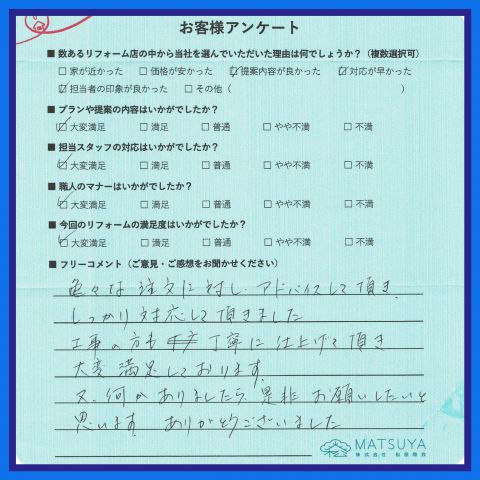 お客様アンケート
■ 数あるリフォーム店の中から当社を選んでいただいた理由は何でしょうか？（複数選択可）
□ 家が近かった □ 価格が安かった ☑ 提案内容が良かった ☑ 対応が早かった
☑ 担当者の印象が良かった □ その他（ ）
■ プランや提案の内容はいかがでしたか？
☑ 大変満足 □ 満足 □ 普通 □ やや不満 □ 不満
■ 担当スタッフの対応はいかがでしたか？
☑ 大変満足 □ 満足 □ 普通 □ やや不満 □ 不満
■ 職人のマナーはいかがでしたか？
☑ 大変満足 □ 満足 □ 普通 □ やや不満 □ 不満
■ 今回のリフォームの満足度はいかがでしたか？
☑ 大変満足 □ 満足 □ 普通 □ やや不満 □ 不満
■ フリーコメント（ご意見・ご感想をお聞かせください）
色々な注文に対し、アドバイスして頂き、
しっかり対応して頂きました
工事の方も 丁寧に仕上げて頂き
大変満足しております。
又、何かありましたら、是非お願いしたいと
思います。ありがとうございました
MATSUYA
株式会社